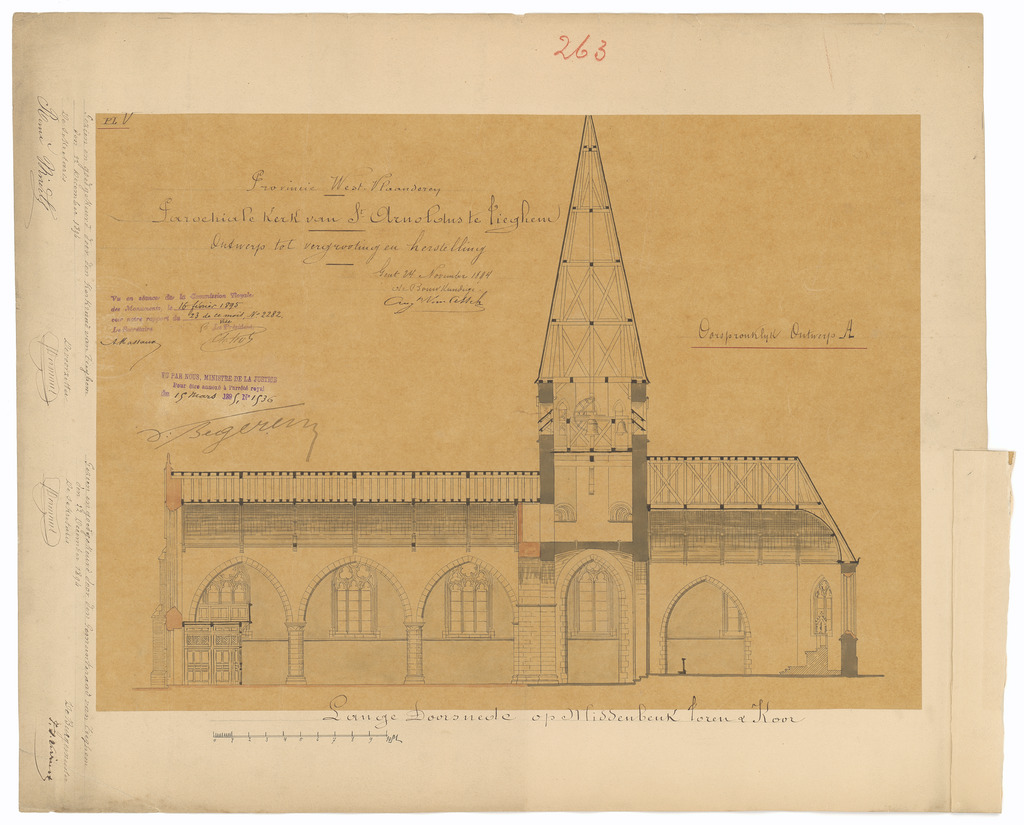 263
PL V
Provincie West-Vlaanderen
Parochiale Kerk van St Arnoldus te Tieghem
Ontwerp tot vergrooting en herstelling
Gent 24 November 1894
De Bouwkundige
Aug. Van Assche
Vu en séance de la Commission Royale
des Monuments, le 16 février 1895
sous notre rapport du 23 de ce mois, No 2282
Le Secrétaire
A. Massaux
VU PAR NOUS, MINISTRE DE LA JUSTICE
Pour être annexé à l'arrêté royal
du 15 Mars 1895, No 1536
V. Begerem
Oorspronklijk Ontwerp A
Lange Doorsnede op Middenbeuk Toren & Koor
0 1 2 3 4 5 6 7 8 9 10 M
Gezien en goedgekeurd door den Kerkraad van Tieghem
den December 1894
De Secretaris
De Voorzitter
Gezien en goedgekeurd door den Gemeenteraad van Tieghem
den December 1894
De Secretaris
De Burgemeester